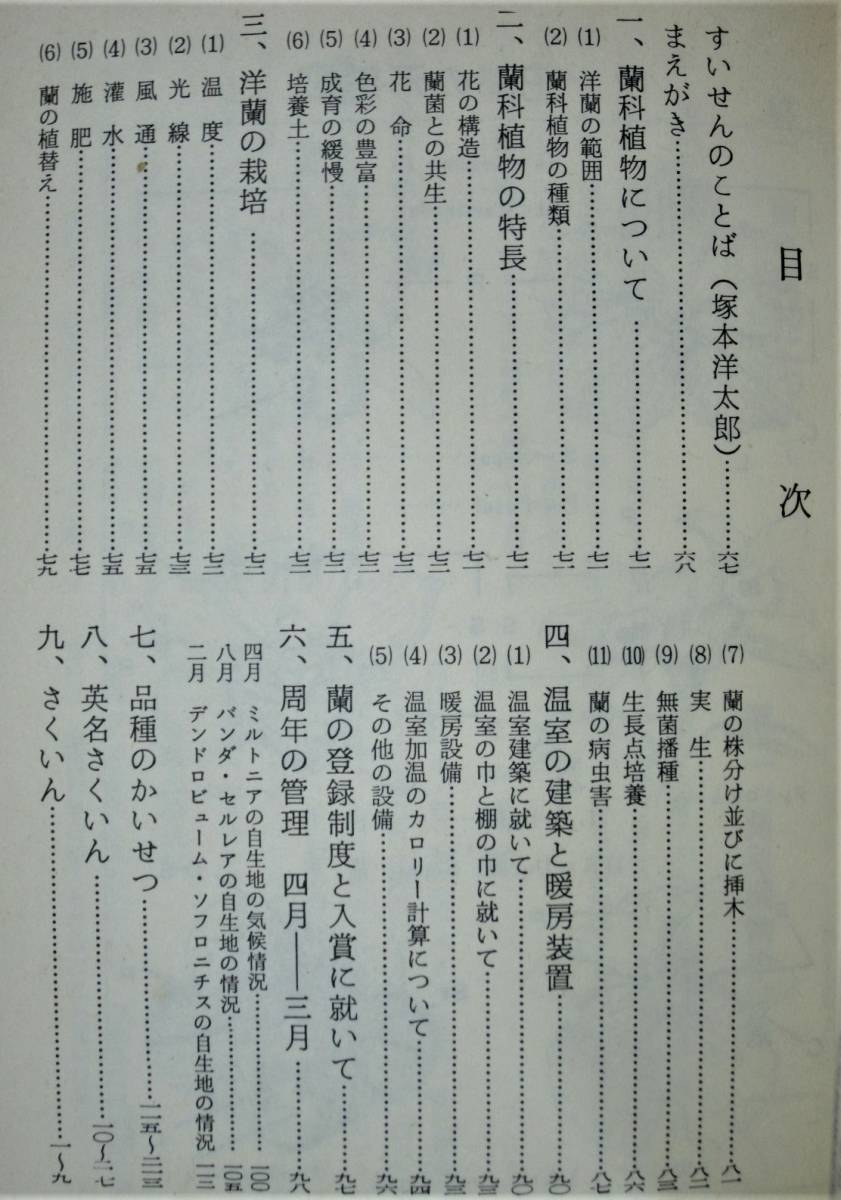 目次
すいせんのことば（塚本洋太郎）…………六七
まえがき…………六八
一、蘭科植物について…………七一
(1) 洋蘭の範囲…………七一
(2) 蘭科植物の種類…………七一
二、蘭科植物の特長…………七一
(1) 花の構造…………七一
(2) 蘭菌との共生…………七二
(3) 花命…………七二
(4) 色彩の豊富…………七二
(5) 成育の緩慢…………七二
(6) 培養土…………七二
三、洋蘭の栽培…………七二
(1) 温度…………七二
(2) 光線…………七三
(3) 風通…………七五
(4) 灌水…………七五
(5) 施肥…………七七
(6) 蘭の植替え…………七九
(7) 蘭の株分け並びに挿木…………八一
(8) 実生…………八二
(9) 無菌播種…………八三
(10) 生長点培養…………八六
(11) 蘭の病虫害…………八七
四、温室の建築と暖房装置…………九〇
(1) 温室建築に就いて…………九〇
(2) 温室の巾と棚の巾に就いて…………九三
(3) 暖房設備…………九三
(4) 温室加温のカロリー計算について…………九四
(5) その他の設備…………九六
五、蘭の登録制度と入賞に就いて…………九七
六、周年の管理　四月――三月…………九八
四月　ミルトニアの自生地の気候情況…………一〇〇
八月　バンダ・セルレアの自生地の情況…………一〇五
二月　デンドロビューム・ソフロニチスの自生地の情況　一一三
七、品種のかいせつ…………一一五～二一三
八、英名さくいん…………一〇～二七
九、さくいん…………一～九